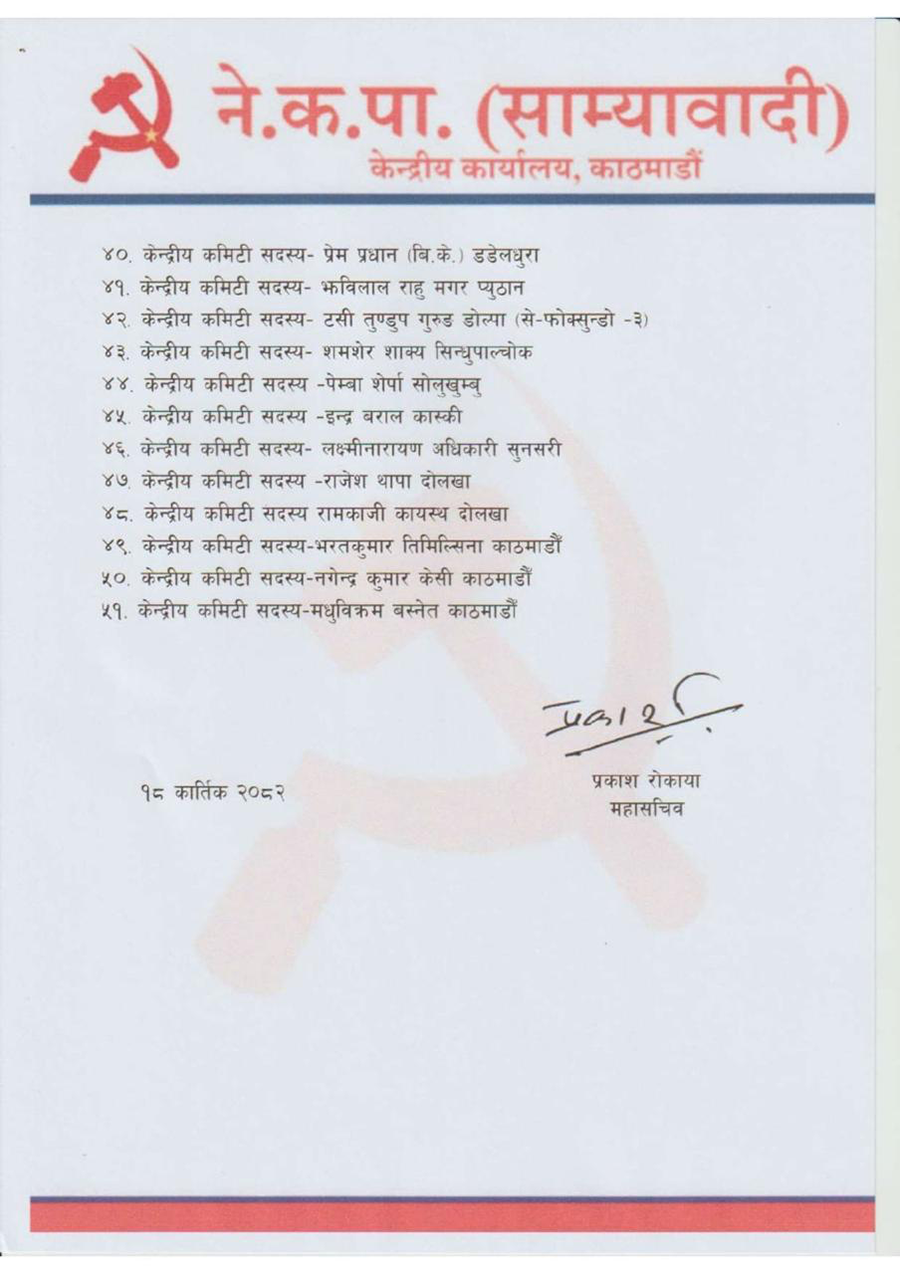 ने.क.पा. (साम्यावादी)
केन्द्रीय कार्यालय, काठमाडौं
४०. केन्द्रीय कमिटी सदस्य- प्रेम प्रधान (बि.के.) डडेलधुरा
४१. केन्द्रीय कमिटी सदस्य- झविलाल राहु मगर प्युठान
४२. केन्द्रीय कमिटी सदस्य- टसी तुण्डुप गुरुङ डोल्पा (से-फोक्सुन्डो -३)
४३. केन्द्रीय कमिटी सदस्य- शमशेर शाक्य सिन्धुपाल्चोक
४४. केन्द्रीय कमिटी सदस्य -पेम्बा शेर्पा सोलुखुम्बु
४५. केन्द्रीय कमिटी सदस्य -इन्द्र बराल कास्की
४६. केन्द्रीय कमिटी सदस्य- लक्ष्मीनारायण अधिकारी सुनसरी
४७. केन्द्रीय कमिटी सदस्य -राजेश थापा दोलखा
४८. केन्द्रीय कमिटी सदस्य रामकाजी कायस्थ दोलखा
४९. केन्द्रीय कमिटी सदस्य-भरतकुमार तिमिल्सिना काठमाडौँ
५०. केन्द्रीय कमिटी सदस्य-नगेन्द्र कुमार केसी काठमाडौँ
५१. केन्द्रीय कमिटी सदस्य-मधुविक्रम बस्नेत काठमाडौँ
प्रकाश
१८ कार्तिक २०८२
प्रकाश रोकाया
महासचिव